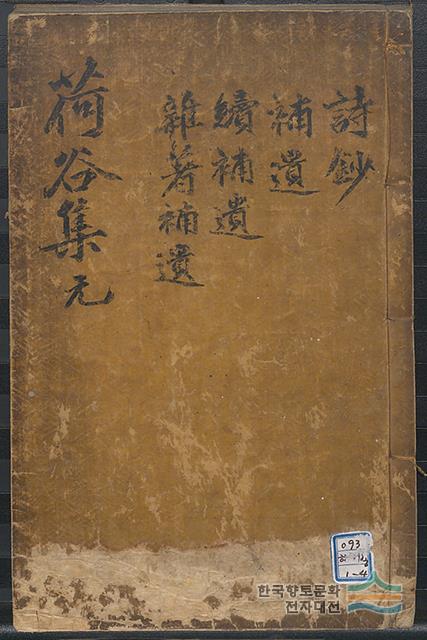 詩鈔
補遺
續補遺
雜著補遺
荷谷集 元
093
1-4
한국향토문화
전자대전